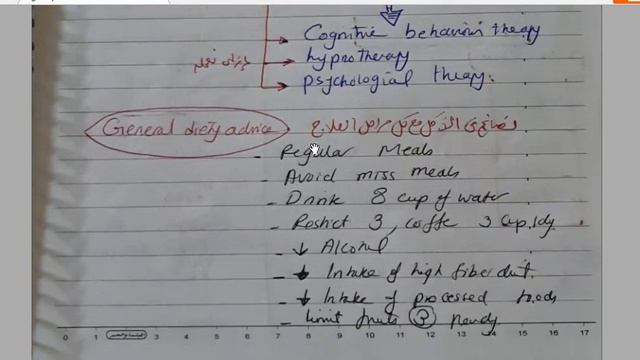 Cognitive behaviour therapy
hypnotherapy
psychological therapy.
General diety advice
- Regular Meals
- Avoid miss meals
- Drink 8 cup of water
- Restrict 3, coffe 3 cup /dy
- ↓ Alcohol
- ↓ Intake of high fiber diet.
- ↓ Intake of processed foods
- limit fruits ③
0 1 2 3 4 5 6 7 8 9 10 11 12 13 14 15 16 17